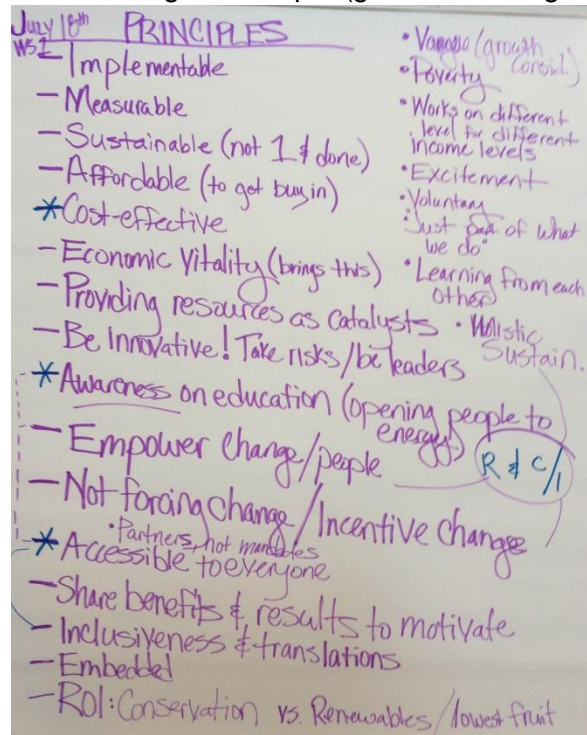 July 18th PRINCIPLES
WS1
- Implementable
- Measurable
- Sustainable (not 1 & done)
- Affordable (to get buy in)
* Cost-effective
- Economic Vitality (brings this)
- Providing resources as catalysts
- Be Innovative! Take risks/be leaders
* Awareness on education (opening people to
energy)
- Empower Change/people
- Not forcing change/Incentive change
• Partners, not mandates
* Accessible to everyone
- Share benefits & results to motivate
- Inclusiveness & translations
- Embedded
- ROI: Conservation vs. Renewables/lowest fruit
(growth
• Poverty
• Works on different
level for different
income levels
• Excitement
• Voluntary
"Just part of what
we do"
• Learning from each
other
• Holistic
Sustain.
R & C/I